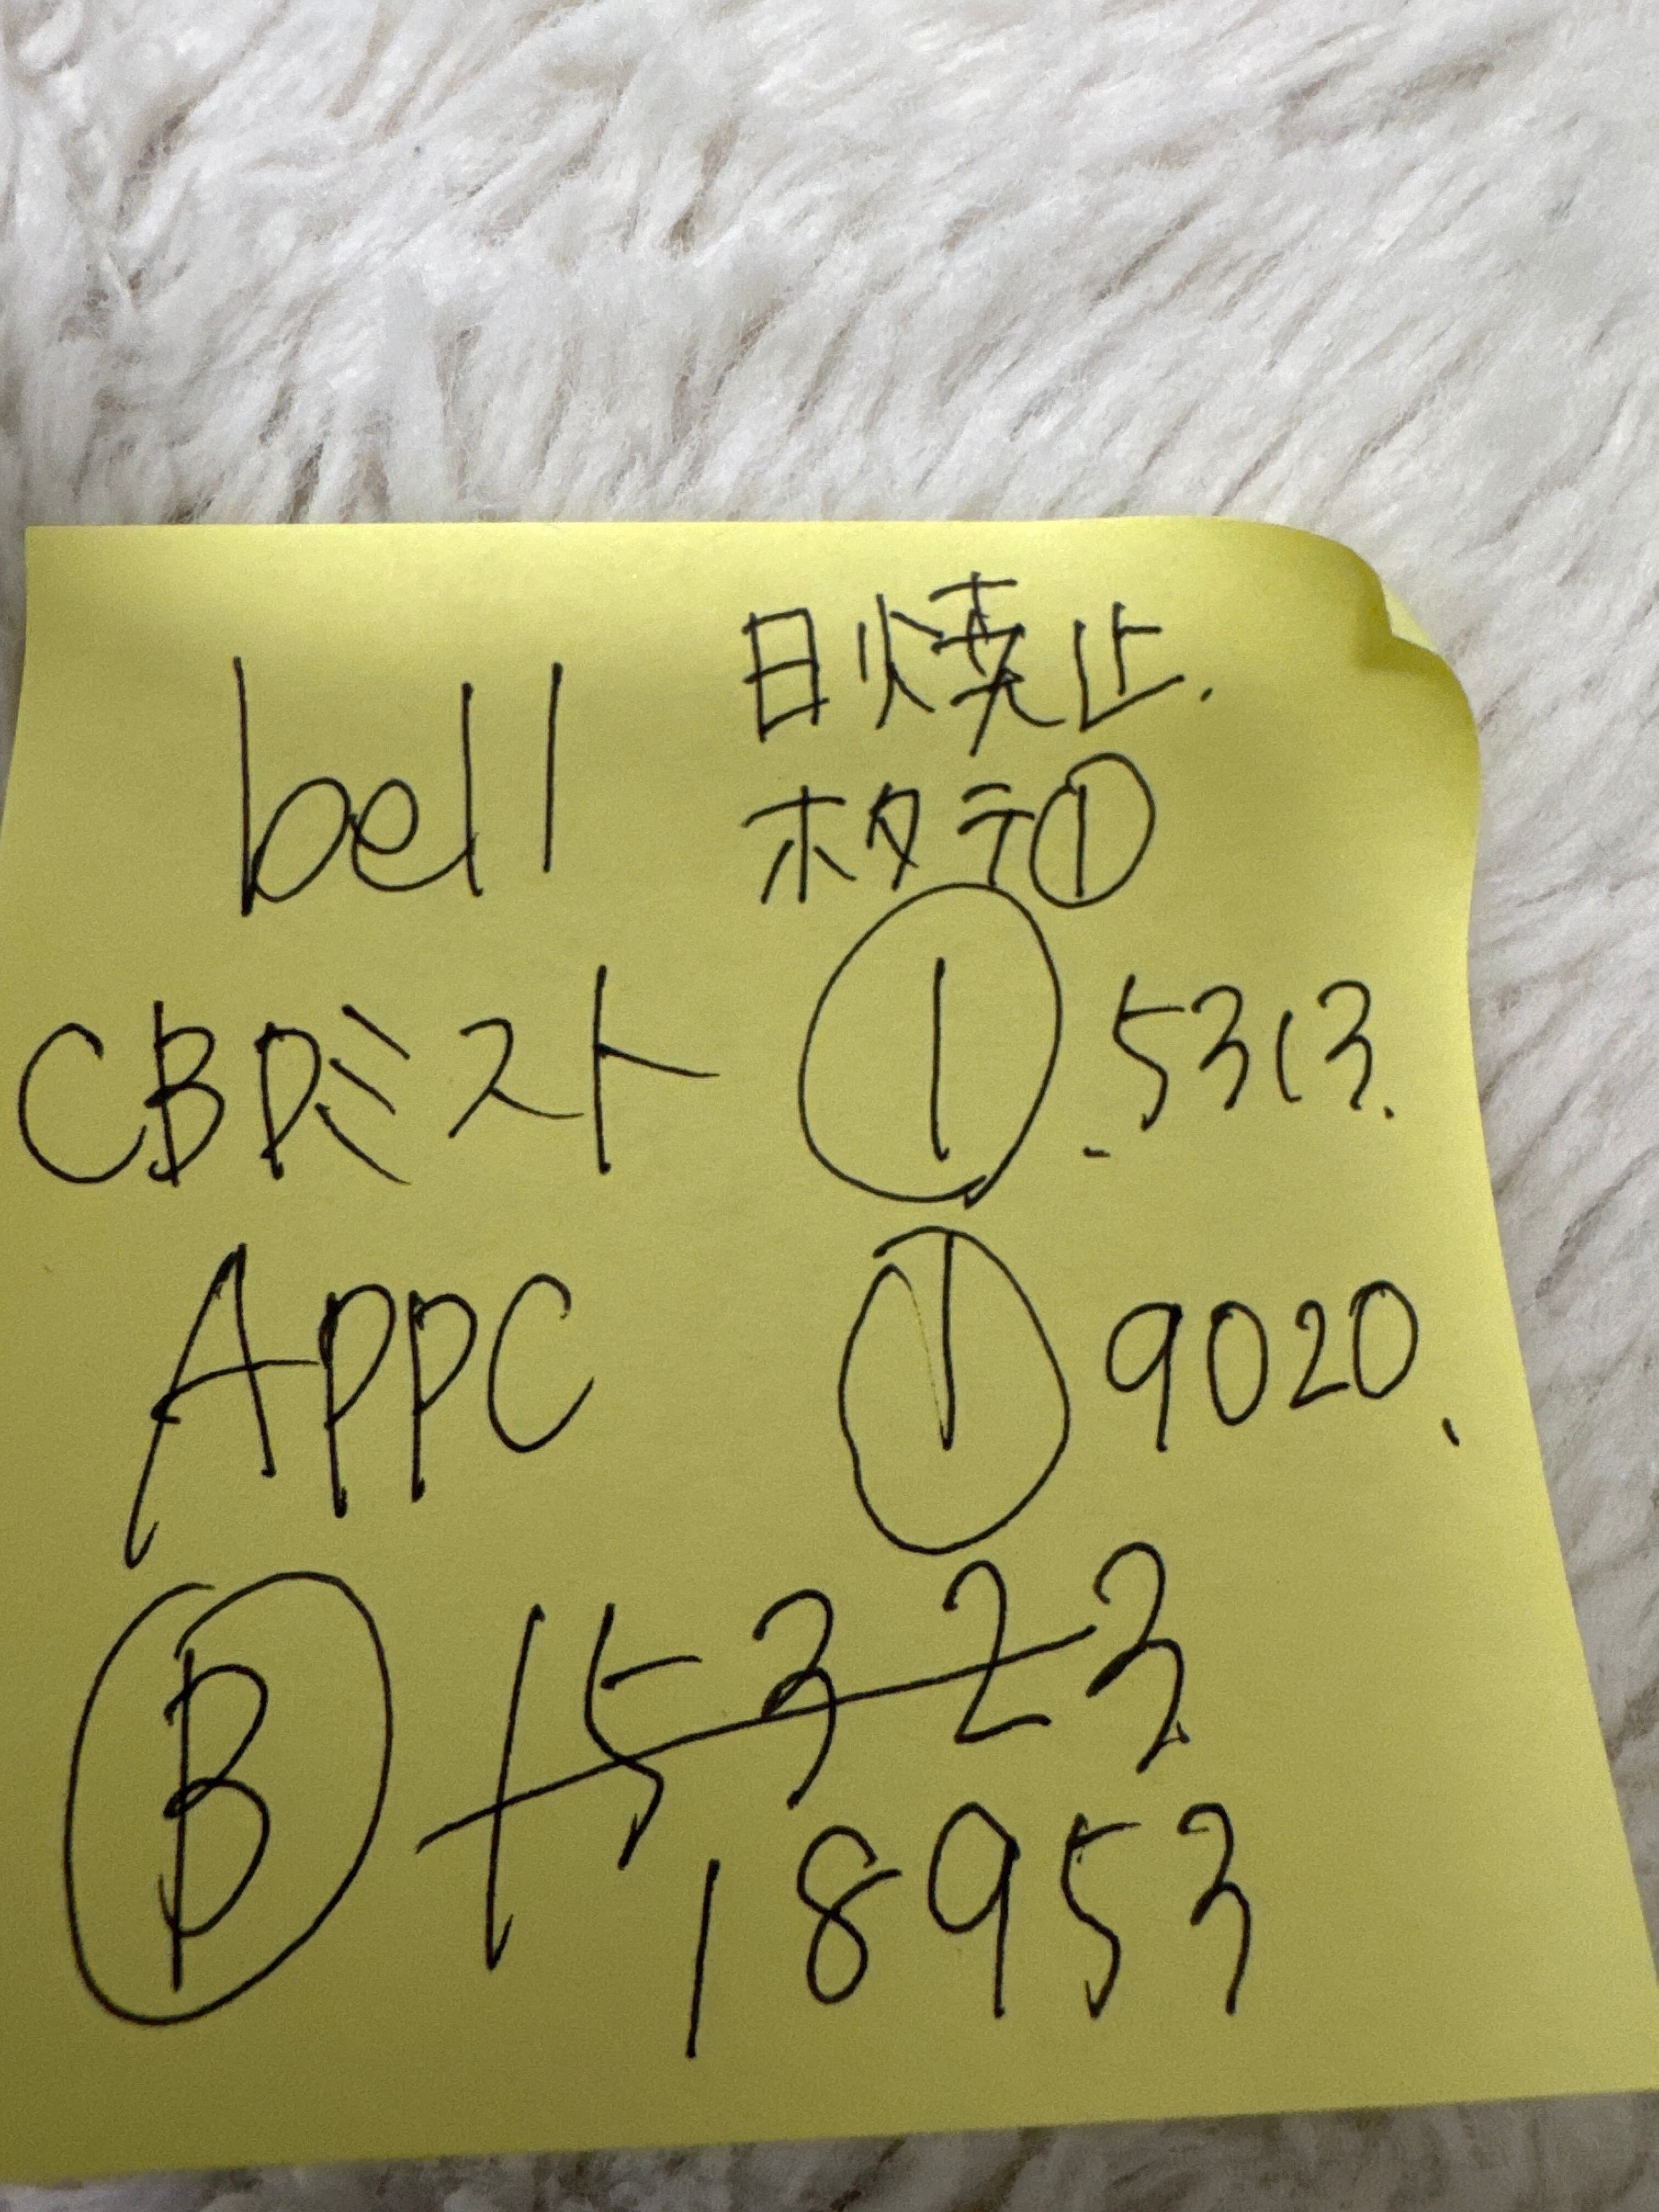 bell 日焼止.
ホタテ①
CBDミスト ① 5313.
APPC ① 9020.
Ⓑ 15323
18953